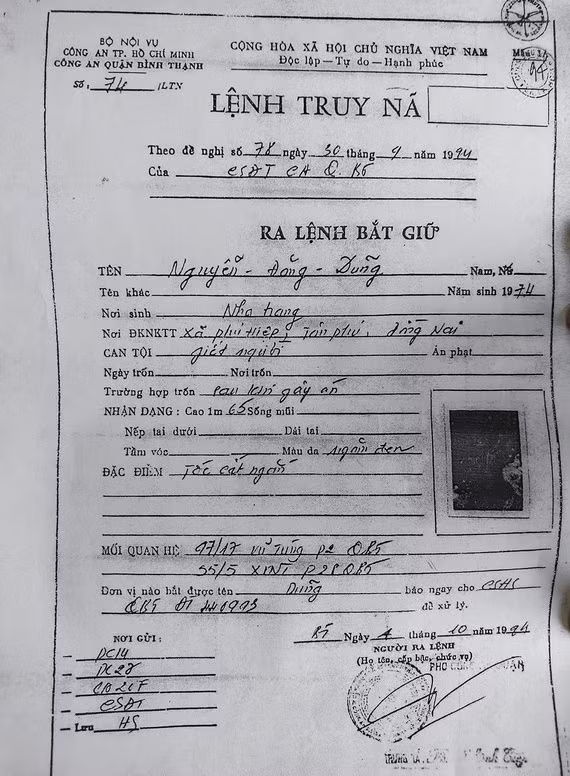 BỘ NỘI VỤ
CÔNG AN TP. HỒ CHÍ MINH
CÔNG AN QUẬN BÌNH THẠNH
Số: 74 /LTN
CỘNG HÒA XÃ HỘI CHỦ NGHĨA VIỆT NAM
Độc lập — Tự do — Hạnh phúc
LỆNH TRUY NÃ
Theo đề nghị số 78 ngày 30 tháng 9 năm 1994
Của CSĐT CA Q. BT
RA LỆNH BẮT GIỮ
TÊN Nguyễn - Đăng - Dũng Nam, Nữ
Tên khác Năm sinh 1974
Nơi sinh Nha trang
Nơi ĐKNKTT Xã phú hiệp, Tân phú, Đồng Nai
CAN TỘI giết người Án phạt
Ngày trốn Nơi trốn
Trường hợp trốn sau khi gây án
NHẬN DẠNG : Cao 1m 65 Sống mũi
Nếp tai dưới Dái tai
Tầm vóc Màu da ngăm đen
ĐẶC ĐIỂM Tóc cắt ngắn
MỐI QUAN HỆ 97/17 Vũ Tùng P2 QBT
55/5 XVNT P28 QBT
Đơn vị nào bắt được tên Dũng báo ngay cho CSHS
QBT ĐT 441993 để xử lý.
NƠI GỬI :
— PC14
— PC28
—
— CSĐT
— Lưu HS
BT Ngày 4 tháng 10 năm 1994
NGƯỜI RA LỆNH
(Họ tên, cấp bậc, chức vụ)
PHÓ CÔNG AN QUẬN